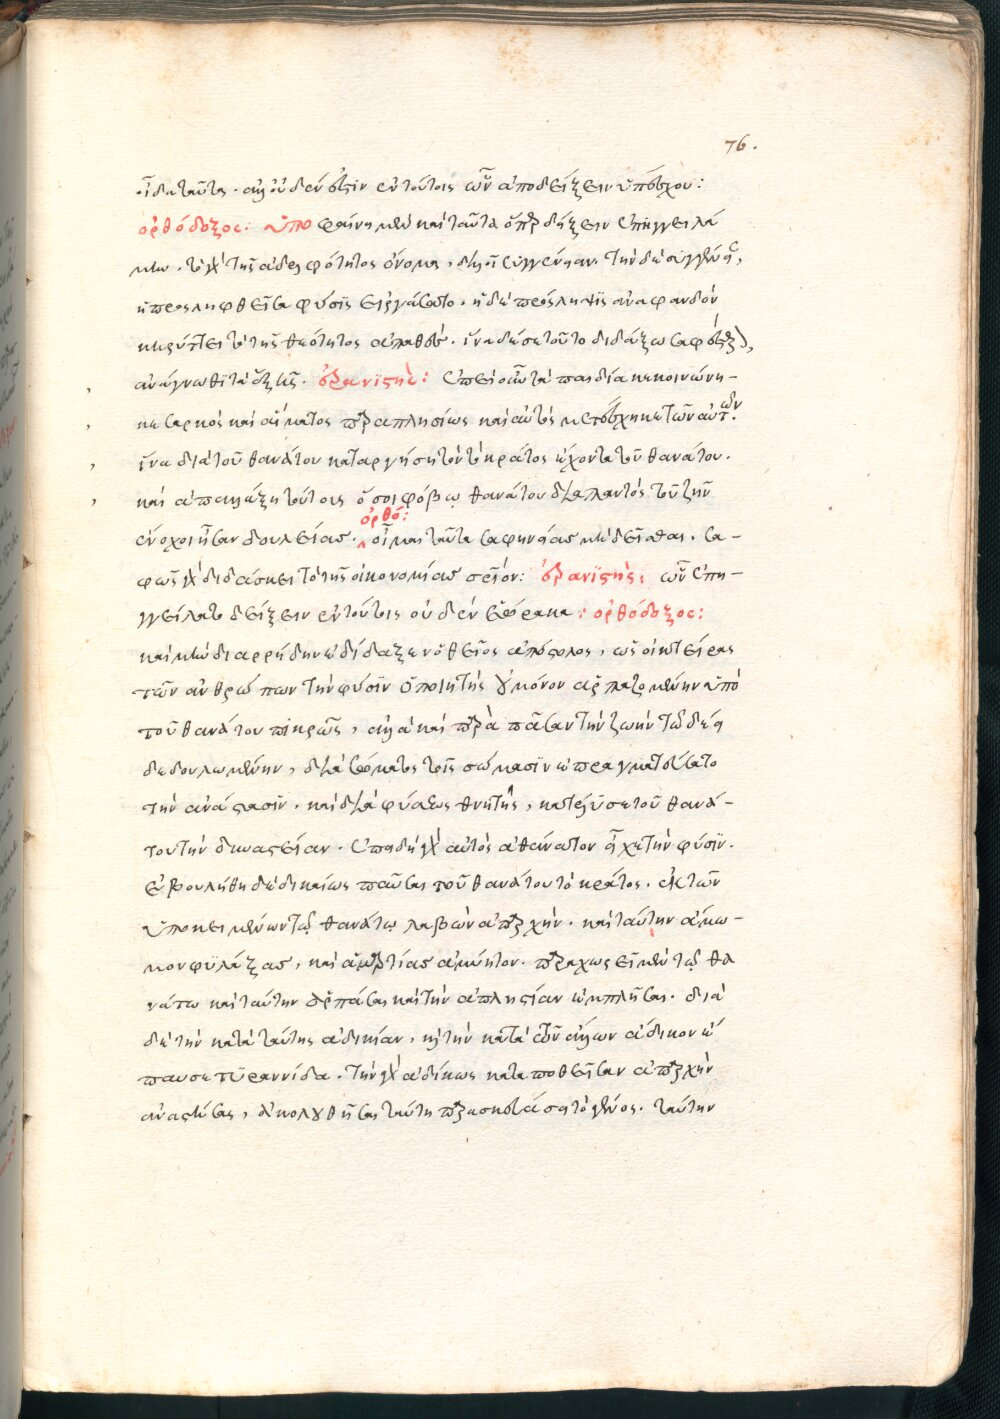 76.
οἶδα ταῦτα. ἀλλ' οὐδέν ἐστιν ἐν τούτοις ὧν ἀποδείξειν ὑπέσχου:
ὀρθόδοξος: ὑποφαίνει μὲν καὶ ταῦτα ὅπερ δείξειν ἐπηγγειλά
μην. τὸ γὰρ τῆς ἀδελφότητος ὄνομα, δηλοῖ συγγένειαν. τὴν δὲ συγγένειαν,
ἡ προσληφθεῖσα φύσις εἰργάσατο. ἡ δὲ πρόσληψις ἀναφανδὸν
κηρύττει τὸ τῆς θεότητος ἀπαθές. ἵνα δέ σε τοῦτο διδάξω σαφέστερον,
ἀνάγνωθι τὰ ἑξῆς. ἐρανιστής: ἐπεὶ οὖν τὰ παιδία κεκοινώνη-
κε σαρκὸς καὶ αἵματος παραπλησίως καὶ αὐτὸς μετέσχηκε τῶν αὐτῶν.
ἵνα διὰ τοῦ θανάτου καταργήσῃ τὸν τὸ κράτος ἔχοντα τοῦ θανάτου.
καὶ ἀπαλλάξῃ τούτους ὅσοι φόβῳ θανάτου διὰ παντὸς τοῦ ζῆν
ἔνοχοι ἦσαν δουλείας. ὀρθό: οἶμαι ταῦτα σαφηνείας μὴ δεῖσθαι. σα-
φῶς γὰρ διδάσκει τὸ τῆς οἰκονομίας μυστήριον: ἐρανιστής: ὧν ἐπη-
γγείλατο δείξειν ἐν τούτοις οὐδὲν ἑώρακα: ὀρθόδοξος:
καὶ μὴν διαρρήδην ἐδίδαξεν ὁ θεῖος ἀπόστολος, ὡς οἰκτείρας
τῶν ἀνθρώπων τὴν φύσιν ὁ ποιητὴς οὐ μόνον ἁρπαζομένην ὑπὸ
τοῦ θανάτου πικρῶς, ἀλλὰ καὶ παρὰ πᾶσαν τὴν ζωὴν τῷ δέει
δεδουλωμένην, διὰ σώματος τοῖς σώμασιν ἐπραγματεύσατο
τὴν ἀνάστασιν. καὶ διὰ φύσεως θνητῆς, κατέλυσε τοῦ θανά-
του τὴν δυναστείαν. ἐπειδὴ γὰρ αὐτὸς ἀθάνατον εἶχε τὴν φύσιν.
ἐβουλήθη δὲ δικαίως παῦσαι τοῦ θανάτου τὸ κράτος. ἐκ τῶν
ὑποκειμένων τῷ θανάτῳ λαβὼν ἀπαρχὴν. καὶ ταύτην ἄμω-
μον φυλάξας, καὶ ἁμαρτίας ἀμύητον. παραχωρεῖ μὲν τῷ θα
νάτῳ καὶ ταύτην ἁρπάσαι καὶ τὴν ἀπληστίαν ἐμπλῆσαι. διὰ
δὲ τὴν κατὰ ταύτης ἀδικίαν, καὶ τὴν κατὰ τῶν ἄλλων ἄδικον ἔ
παυσε τυραννίδα. τὴν γὰρ ἀδίκως καταποθεῖσαν ἀπαρχὴν
ἀναστήσας, ἀκολουθῆσαι ταύτῃ παρασκευάσει τὸ γένος. ταύτην